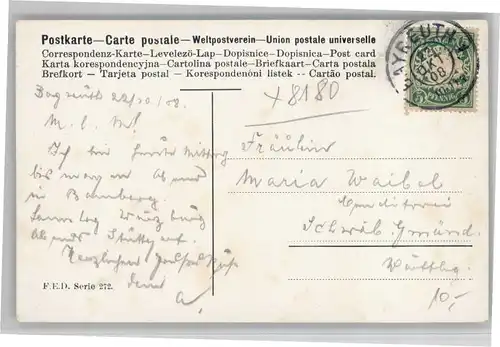 Postkarte—Carte postale—Weltpostverein—Union postale universelle
Correspondenz-Karte—Levelező-Lap—Dopisnice—Dopisnica—Post card
Karta korespondencyjna—Cartolina postale—Briefkaart—Carta postala
Brefkort — Tarjeta postal — Korespondenčni listek — Cartão postal.
BAYREUTH
OKT
08
+8180
Bayreuth 22/10/08.
M. l. M!
Ich bin heute Mittag
bis morgen Abend
in Bamberg.
Samstag Würzburg
Abends Stuttgart.
Herzlichen Gruß
dein
A.
Fräulein
Maria Waibel
Conditorei
Schwäb. Gmünd.
Württbg.
10,-
F.E.D. Serie 272.